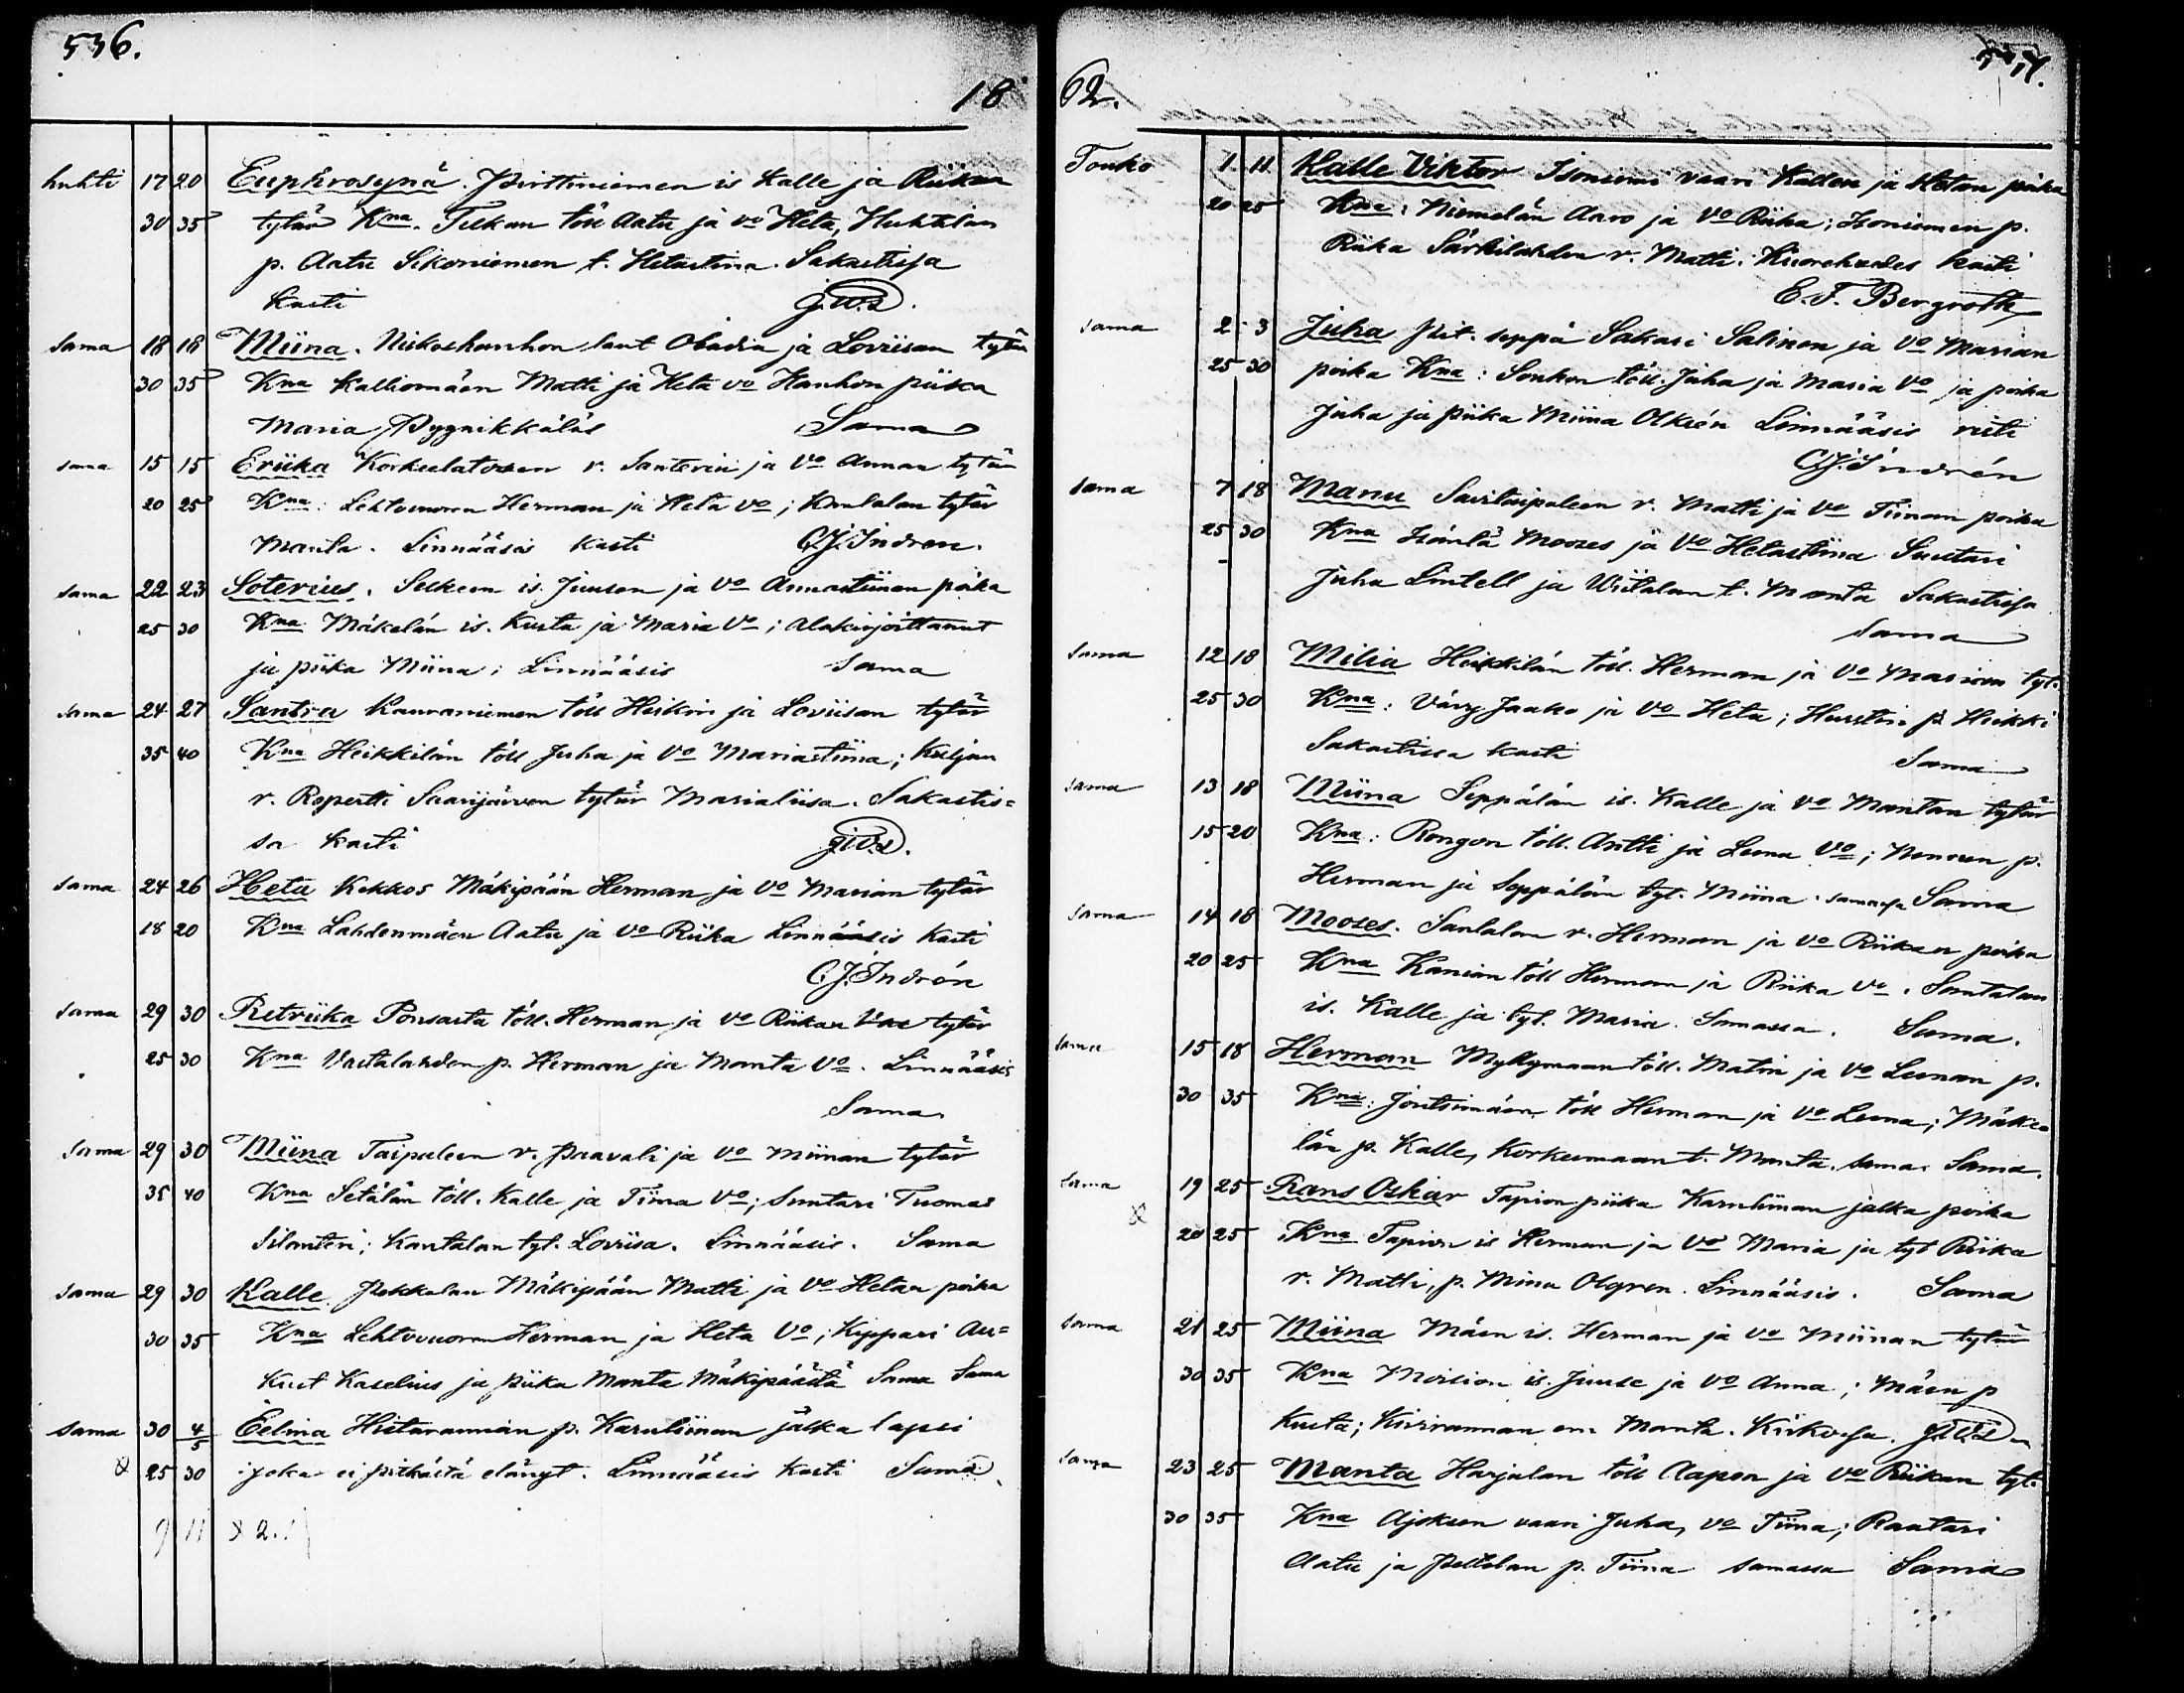 536.
18
huhti 17 20 Euphrosynä. Pirttiniemen is Kalle ja Riikan
30 35 tytär Kna. Tukan töll Aatu ja vo Heta, Huhtalan
p. Aatu Sikoniemen t. Hetastina. Sakastissa
kasti
Sama 18 18 Miina. Niikoskanhon laut Obadia ja Loviisan tytär
30 35 Kna Kalliomäen Matti ja Heta vo Hanhon piika
Maria Pyynikkälä Sama
sama 15 15 Eriika Korkealatvan r. Santerin ja Vo Annan tytär
20 25 Kna: Lehtvuoren Herman ja Heta vo; Kantalan tytär
Manta. Linnääsis kasti C.J. Indrén.
sama 22 23 Soterius. Selkeen is. Juuson ja Vo Annastiinan poika
25 30 Kna Mäkelän is. Kusta ja Maria Vo; Alakirjoittanut
ja piika Miina; Linnääsis Sama
sama 24 27 Santra Kauraniemen töll Heikin ja Loviisan tytär
35 40 Kna Heikkilän töll Juha ja Vo Mariastiina; Kuljun
r. Ropertti Saarijärven tytär Marialiisa. Sakastis=
sa kasti
sama 24 26 Heta Kekkos Mäkipään Herman ja Vo Marian tytär
18 20 Kna Lahdenmäen Aatu ja Vo Riika Linnääsis kasti
C.J. Indrén
sama 29 30 Retriika Ponsasta töll. Herman ja Vo Riikan tytär
25 30 Kna Vastalahden p. Herman ja Manta Vo. Linnääsis
Sama
Sama 29 30 Miina Taipaleen r. Paavali ja Vo Miinan tytär
35 40 Kna Setälän töll. Kalle ja Tiina Vo; Suutari Tuomas
Silanteri; Kantalan tyt. Loviisa. Linnääsis. Sama
sama 29 30 Kalle Pekkalan Mäkipään Matti ja Vo Hetan poika
30 35 Kna Lehtvuoren Herman ja Heta Vo; Kippari Au=
kust Kaselius ja piika Manta Mäkipäästä Sama Sama
sama 30 4/5 Eelina Hietarannan p. Karuliinan jälka lapsi
25 30 joka ei pitkästä elänyt. Linnääsis kasti Sama
9 11 x 2.
62.
Touko 1. 11 Kalle Viktor Isoniemi vaari Kallen ja Hetan poika
20 25 Kna: Niemelän Aaro ja Vo Riika; Isoniemen p.
Riika Särkilahden r. Matti. Kuorehuudes kasti
E. F. Bergroth
sama 2 3 Juha Pit. seppä Sakari Salinen ja Vo Marian
25 30 poika Kna: Sonkon töll. Juha ja Maria Vo ja poika
Juha ja piika Miina Olkién Linnääsis risti
C.J. Indrén
sama 7 18 Manu Savitaipaleen r. Matti ja Vo Tiinan poika
25 30 Kna Isäntä Mooses ja Vo Hetastiina Suutari
Juha Lintell ja Wiitalan t. Manta Sakastissa
Sama
sama 12 18 Milia Heikkilän töll. Herman ja Vo Marian tyt.
25 30 Kna: Väry Jaako ja Vo Heta; Hurstin p. Heikki
Sakastissa kasti Sama
sama 13 18 Miina Seppälän is. Kalle ja Vo Mantan tytär
15 20 Kna: Rongon töll. Antti ja Leena Vo; Nenosen p.
Herman ja Seppälän tyt. Miina. samassa Sama
sama 14 18 Mooses. Santalan r. Herman ja Vo Riikan poika
20 25 Kna Kanian töll Herman ja Riika Vo. Santalan
is. Kalle ja tyt. Maria. Samassa. Sama.
sama 15 18 Herman Myllymaan töll. Matin ja Vo Leenan p.
30 35 Kna: Jontsimäen töll Herman ja Vo Leena; Mäke=
län p. Kalle, Korkeemaan t. Manta. sama. Sama.
Sama 19 25 Rans Oskar Tapion piika Karuliinan jalka poika
20 25 Kna Tapion is Herman ja Vo Maria ja tyt Riika
r. Matti, p. Mina Olgren. Linnääsis. Sama
sama 21 25 Miina Mäen is. Herman ja Vo Miinan tytär
30 35 Kna Moision is. Juuse ja Vo Anna; Mäen p
Kusta; Kivirannan em. Manta. Kirkossa.
Sama 23 25 Manta Harjulan töll Aapon ja Vo Riikan tyt.
30 35 Kna Ajoksen vaari Juha, Vo Tiina; Raatari
Aatu ja Peltolan p. Tiina samassa Sama